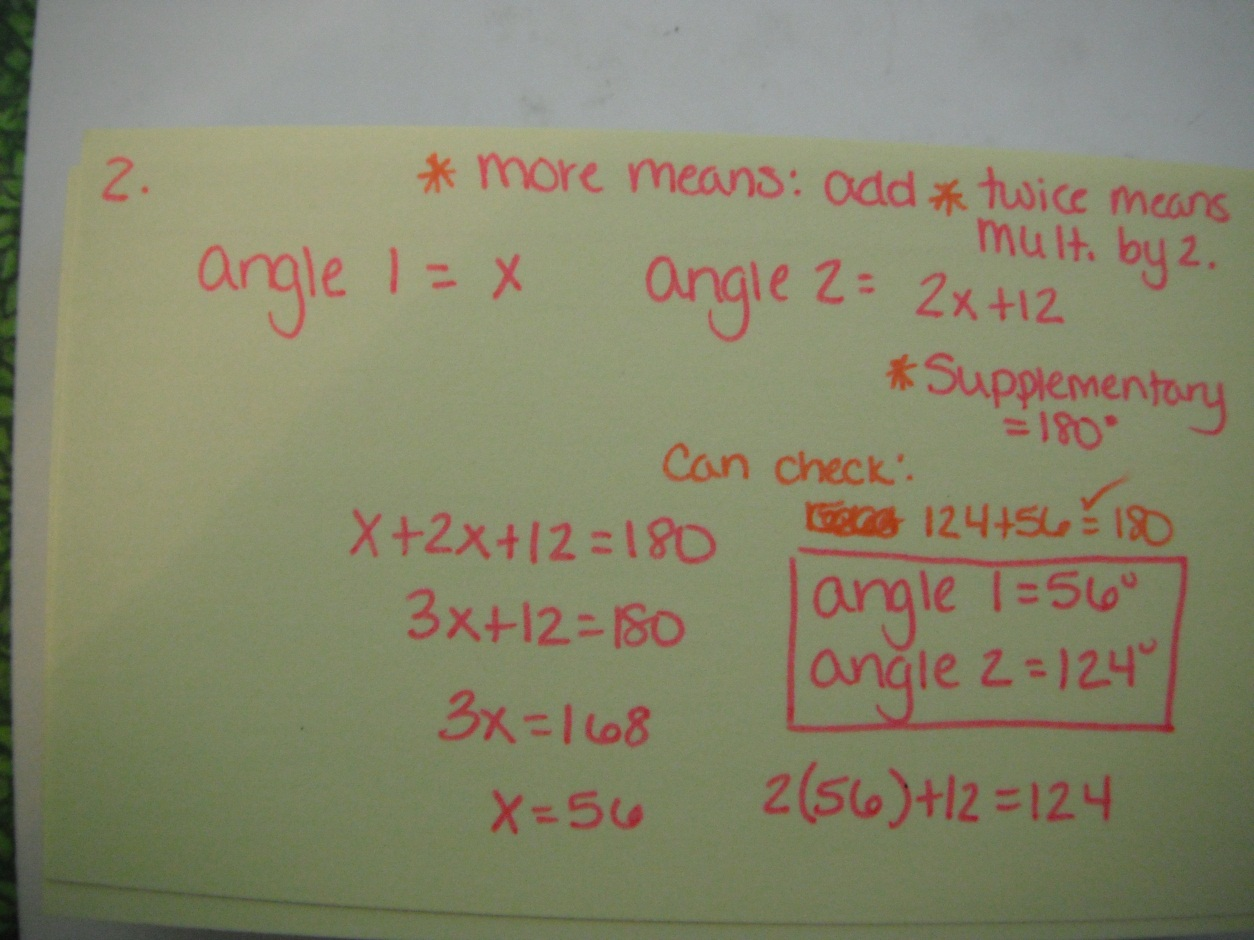 2.
* more means: add * twice means
mult. by 2.
angle 1 = x
angle 2 = 2x+12
*Supplementary
=180°
Can check:
124+56=180 ✓
x+2x+12=180
3x+12=180
3x=168
x=56
angle 1=56°
angle 2=124°
2(56)+12=124